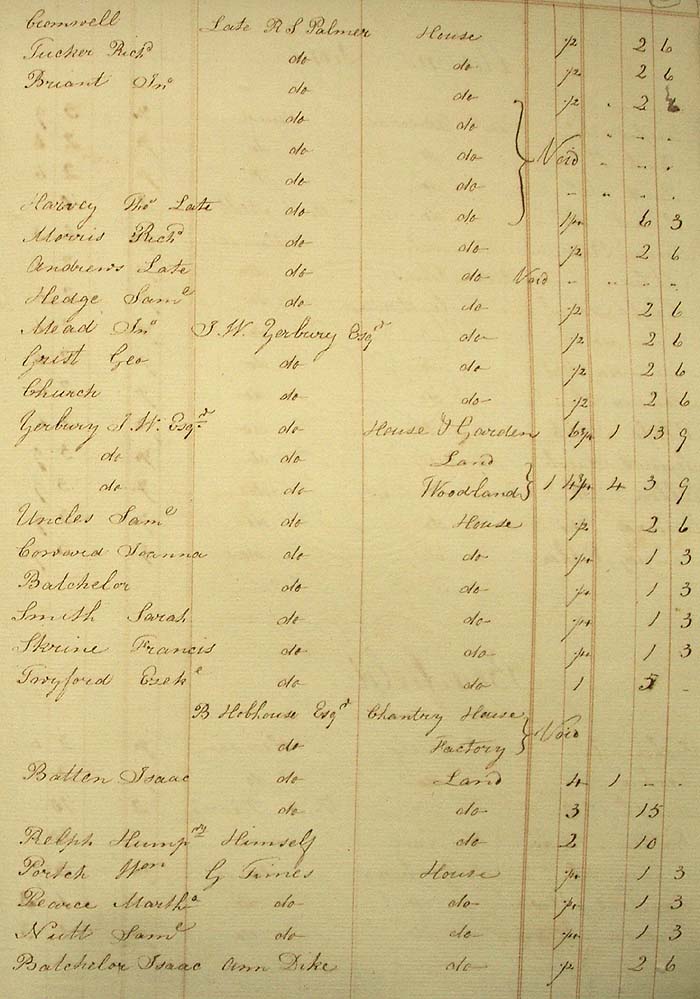 Cromwell Late R S Palmer House 1/2 2 6
Tucker Richd do do 1/2 2 6
Briant Jno do do 1/2 2 6
do do
do do Void
do do
Harvey Thos Late do do 1/4 6 3
Morris Richd do do 1/2 2 6
Andrews Late do do Void
Hedge Saml do do 1/2 2 6
Mead Jno J. W. Yerbury Esqr do 1/2 2 6
Grist Geo do do 1/2 2 6
Church do do 1/2 2 6
Yerbury J. W. Esqr do House & Garden 6 3/4 1 13 9
do do Land
do do Woodland 1 4 3/4 4 3 9
Uncles Saml do House 1/2 2 6
Coward Joanna do do 1/4 1 3
Batchelor do do 1/4 1 3
Smith Sarah do do 1/4 1 3
Skrine Francis do do 1/4 1 3
Twyford Ezekl do do 1 5 -
B Hobhouse Esqr Chantry House
do Factory Void
Batten Isaac do Land 4 1 - -
do do 3 15
Relph Humpry Himself do 2 10
Portch Wm G Times House 1/4 1 3
Pearce Martha do do 1/4 1 3
Nutt Saml do do 1/4 1 3
Batchelor Isaac Ann Dike do 1/2 2 6